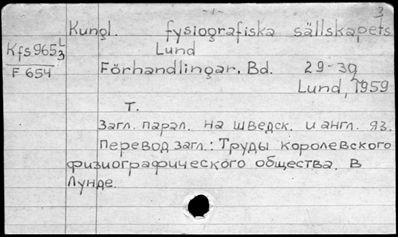 -1-
3
Kungl. fysiografiska sällskapets
Kfs965 L/3
Lund
F 654
Förhandlingar. Bd. 29-39
Lund, 1959
т.
Загл. парал. на шведск. и англ. яз.
Перевод загл.: Труды королевского
физиографического общества. в
Лунде.